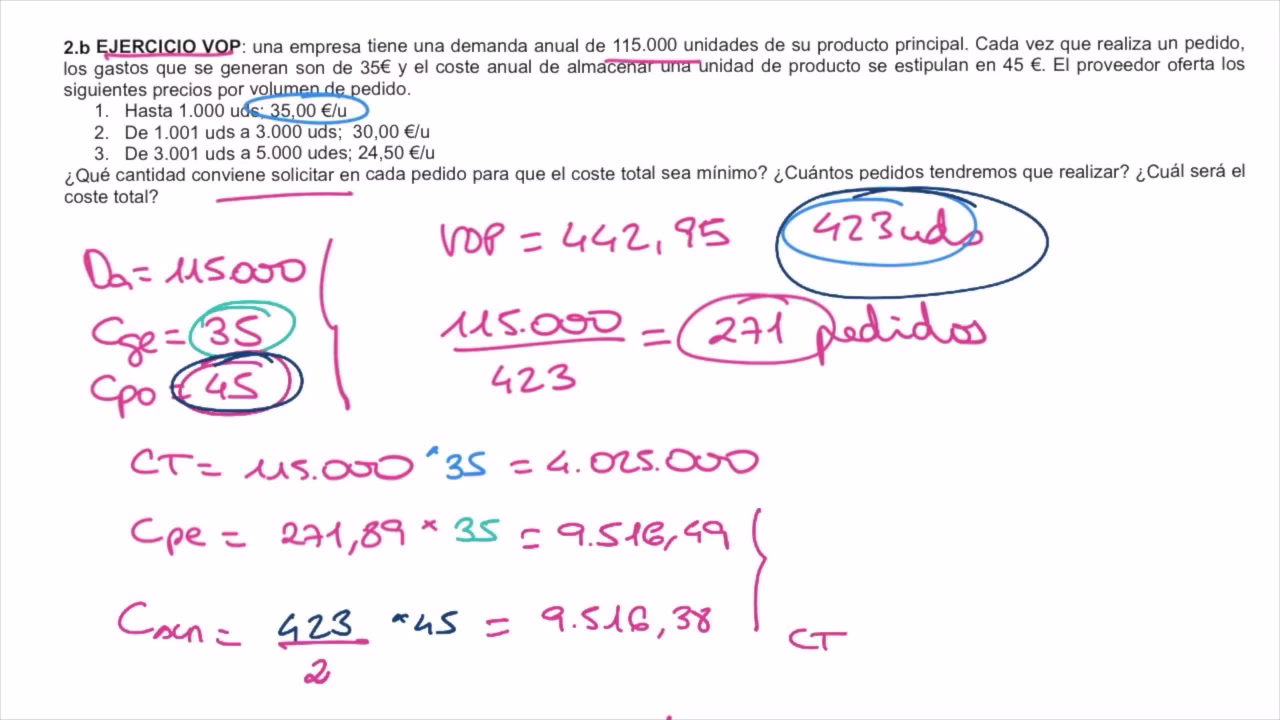 2.b EJERCICIO VOP: una empresa tiene una demanda anual de 115.000 unidades de su producto principal. Cada vez que realiza un pedido,
los gastos que se generan son de 35€ y el coste anual de almacenar una unidad de producto se estipulan en 45 €. El proveedor oferta los
siguientes precios por volumen de pedido.
1. Hasta 1.000 uds; 35,00 €/u
2. De 1.001 uds a 3.000 uds; 30,00 €/u
3. De 3.001 uds a 5.000 udes; 24,50 €/u
¿Qué cantidad conviene solicitar en cada pedido para que el coste total sea mínimo? ¿Cuántos pedidos tendremos que realizar? ¿Cuál será el
coste total?
VOP = 442,95 423 uds
Da = 115.000
Cge = 35
Cpo = 45
115.000 / 423 = 271 pedidos
CT = 115.000 * 35 = 4.025.000
Cpe = 271,89 * 35 = 9.516,49
= 423 / 2 * 45 = 9.516,38
CT